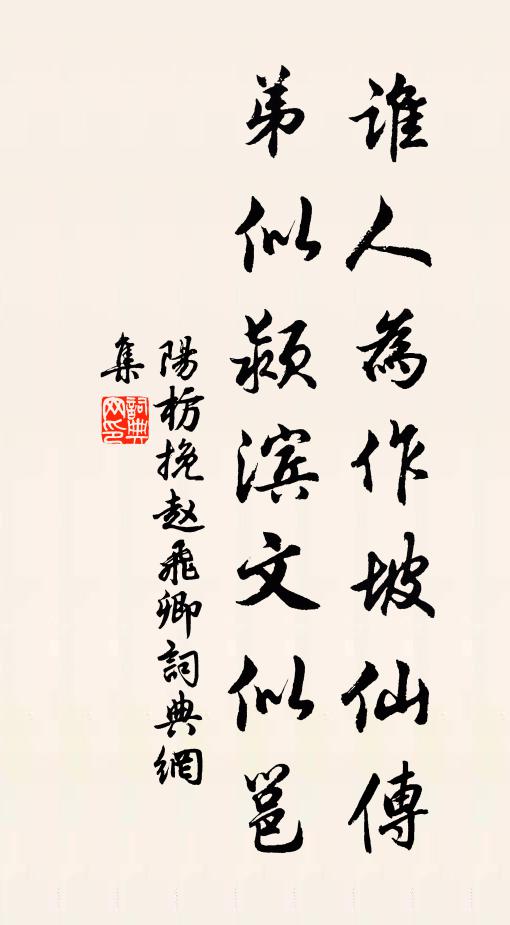 誰人為作坡仙傳
弟似颍滨文似邕
陽枋挽赵飛卿詞典網
集
詞典网印